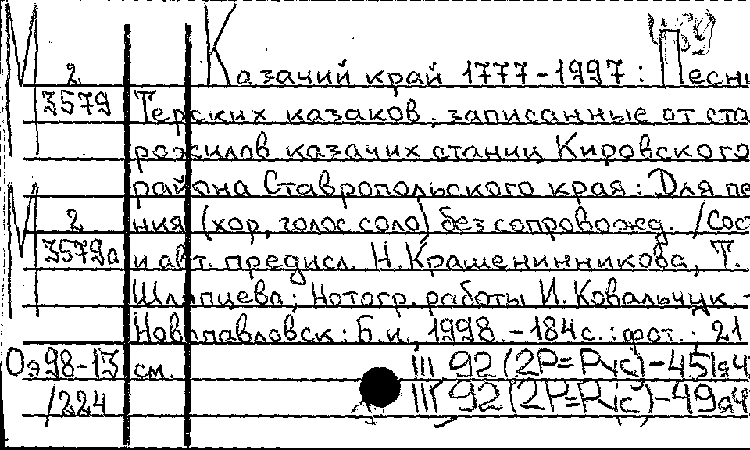 М
2 Казачий край 1777-1997 : Песни
3579 Терских казаков, записанные от ста
рожилов казачих станиц Кировского
района Ставропольского края : Для пе
М
2 ния (хор, голос соло) без сопровожд. /Сос
3579а и авт. предисл. Н.Крашенинникова, Т.
Шляпцева; Нотогр. работы И.Ковальчук. -
Новопавловск : Б.и., 1998. - 184с. : фот. ; 21
Оэ98-13 см. III 92(2Р=Рус)-45
/224 III 92(2Р=Рус)-49